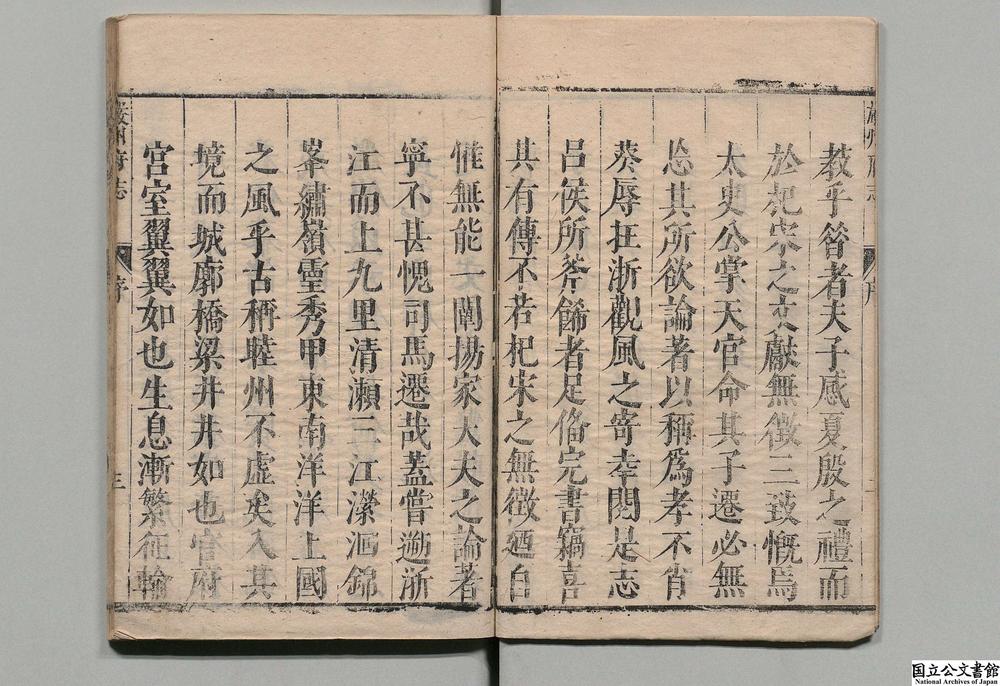 教乎答者夫子感夏殷之禮而
於杞宋之文獻無徵三致慨焉
太史公掌天官命其子遷必無
忘其所欲論著以稱爲孝不肖
葵辱在浙觀風之寄幸閱是志
呂侯所斧飾者足偹完書竊喜
其有傳不若杞宋之無徵廼自
惟無能一闡揚家大夫之論著
寧不甚愧司馬遷哉蓋嘗遡浙
江而上九里清瀨三江瀠洄錦
峯繡嶺靈秀甲東南洋洋上國
之風乎古稱睦州不虛矣入其
境而城廓橋梁井井如也官府
宮室翼翼如也生息漸繁征輪
嚴州府志
序
三
国立公文書館
National Archives of Japan